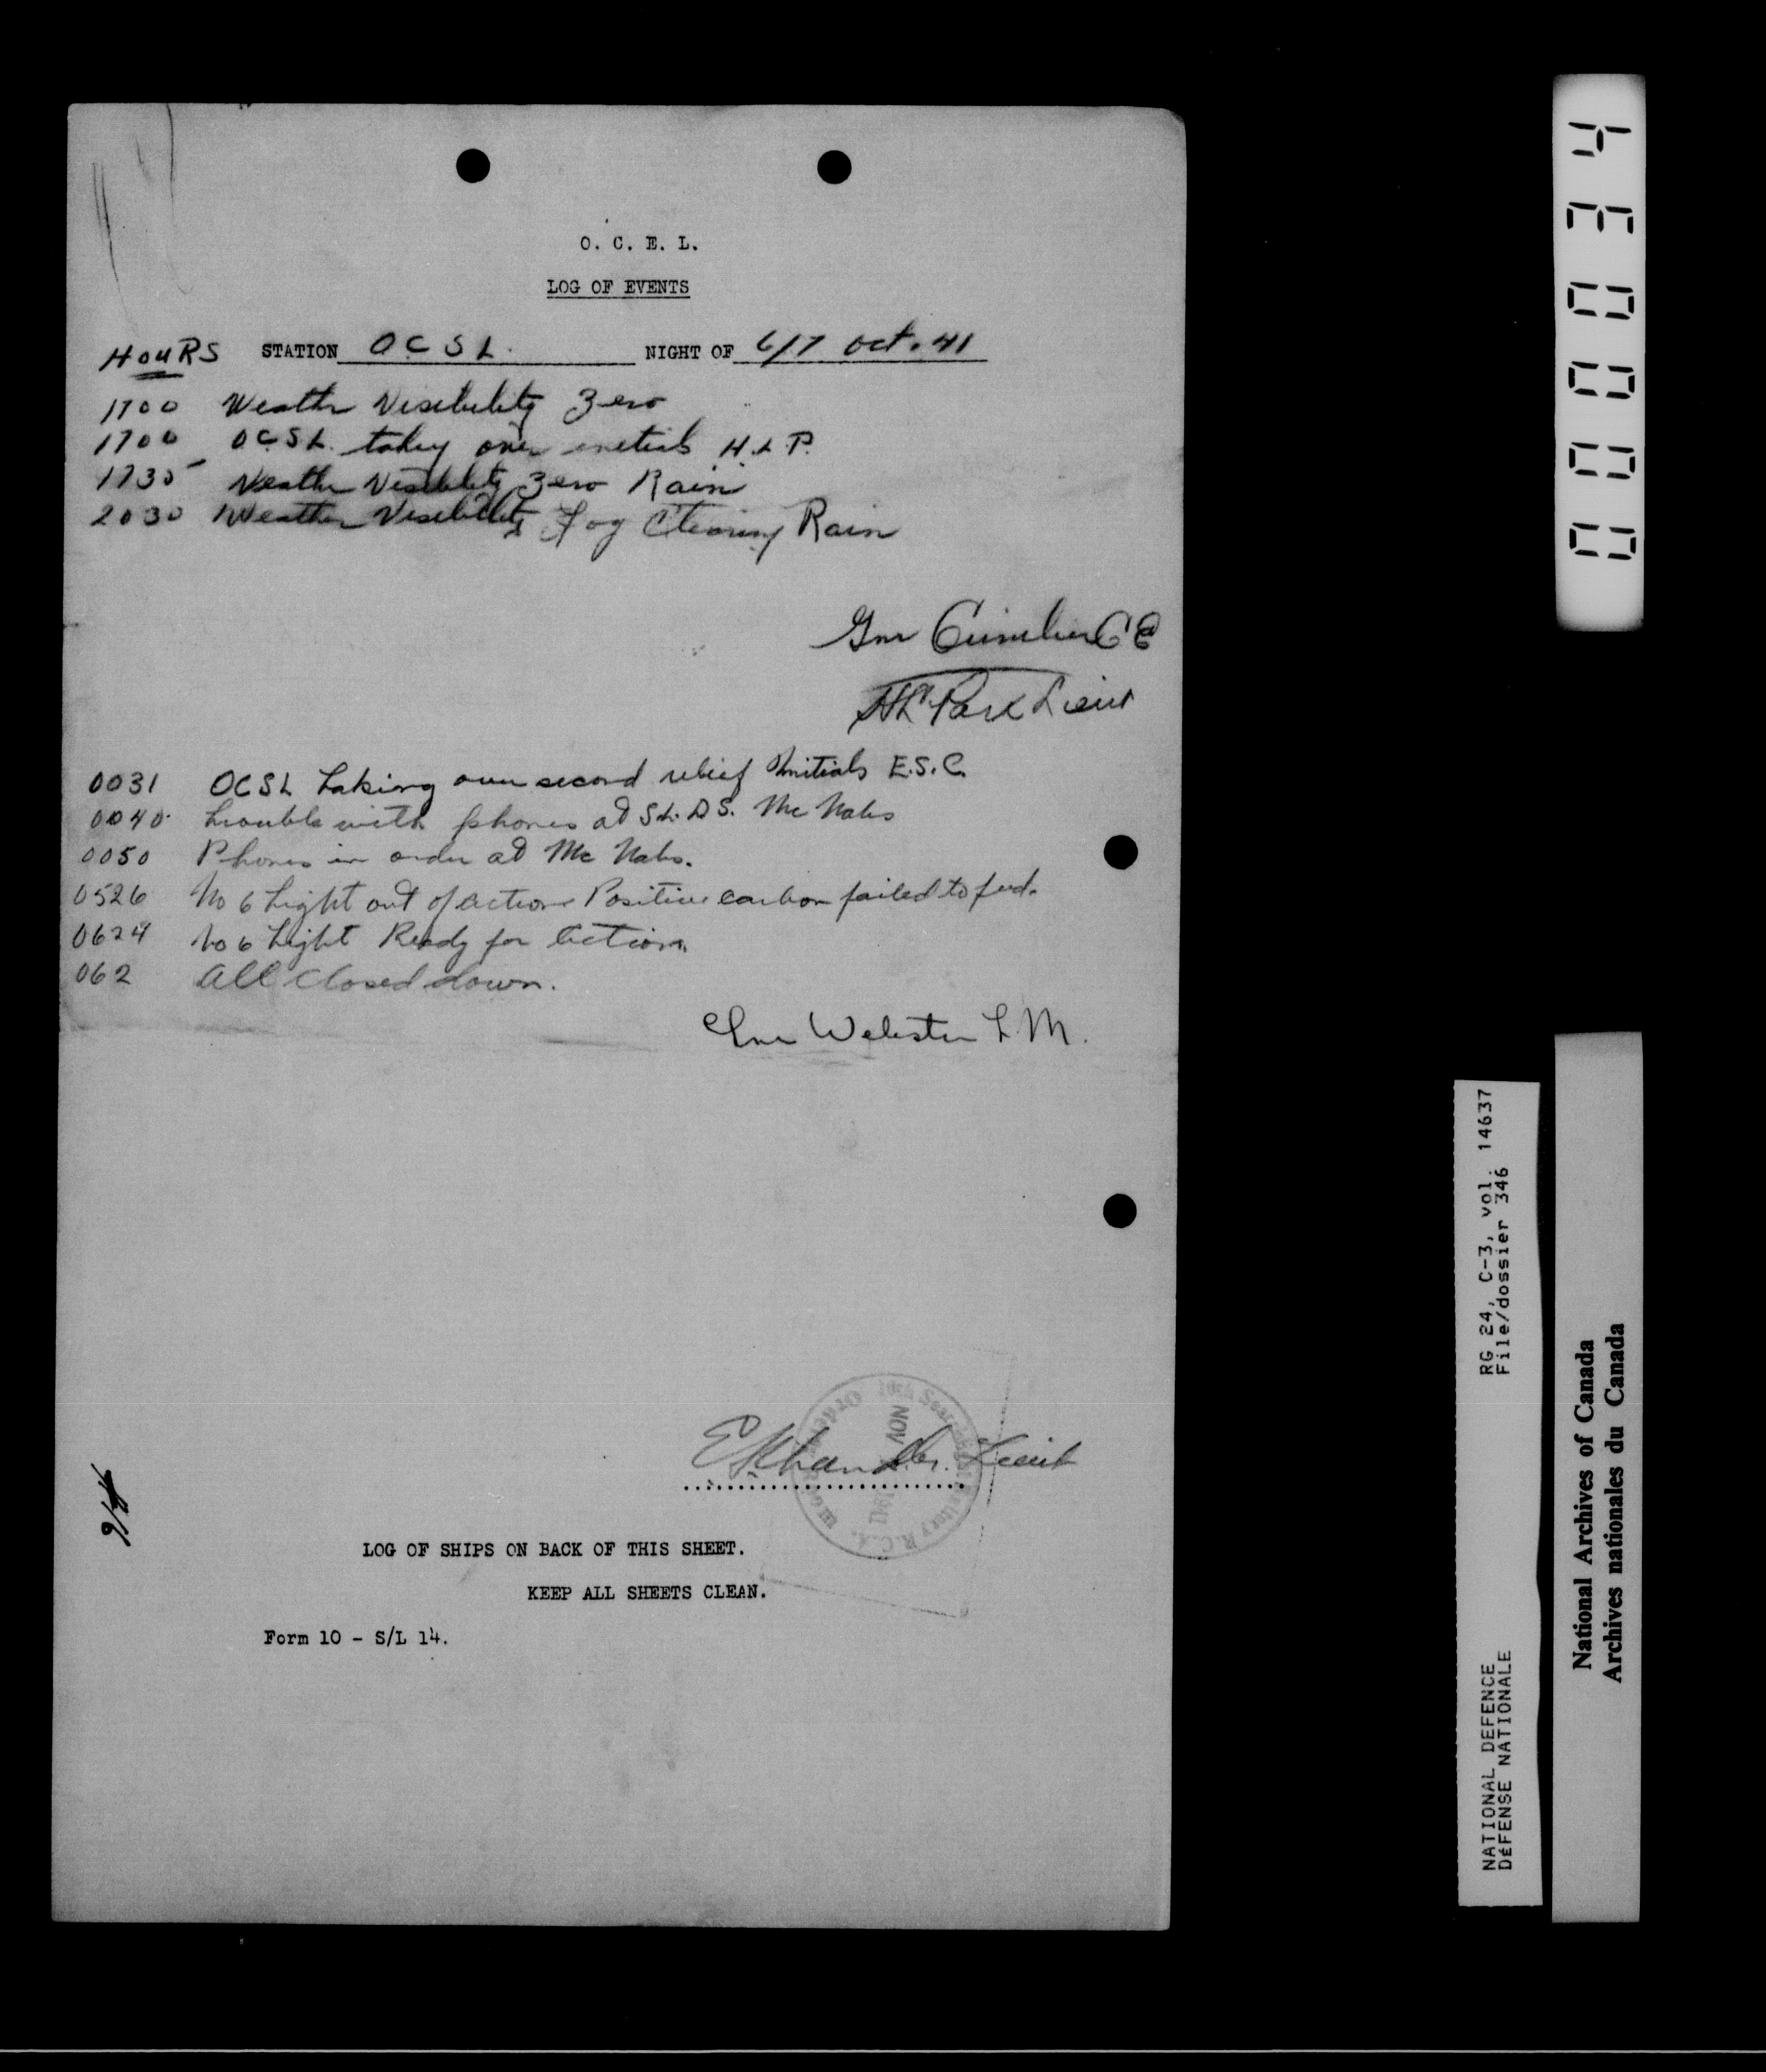 O. C. E. L.
LOG OF EVENTS
HOURS STATION OCSL. NIGHT OF 6/7 Oct. 41
1700 Weather Visibility Zero
1700 OCSL. taking over initials H.L.P.
1735 Weather Visibility Zero Rain
2030 Weather Visibility Fog Clearing Rain
Gnr
Park Lieut
0031 OCSL Taking over second relief Initials E.S.C.
0040 Trouble with phones at S.L. D.S. Mc Nabs
0050 Phones in order at Mc Nabs.
0526 No 6 Light out of action Positive carbon failed to feed.
0624 No 6 Light Ready for Action.
062 All Closed down.
Gnr Webster L.M.
NOV 1941
Lieut
LOG OF SHIPS ON BACK OF THIS SHEET.
KEEP ALL SHEETS CLEAN.
Form 10 - S/L 14.
RG 24, C-3, vol. 14637
File/dossier 346
NATIONAL DEFENCE
DÉFENSE NATIONALE
National Archives of Canada
Archives nationales du Canada